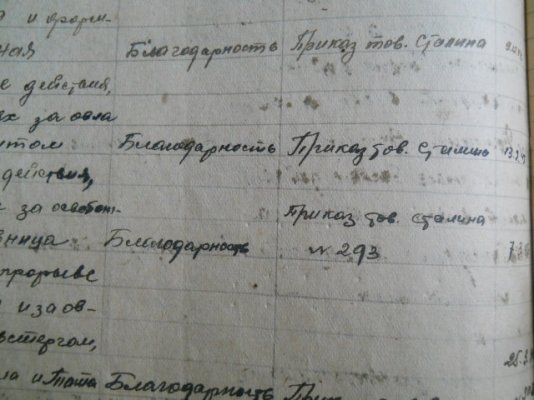 и форси-
ная Благодарность Приказ тов. Сталина
е действия,
х за овла
том Благодарность Приказ тов. Сталина
действия,
за освобож-
Приказ тов. Сталина
вница Благодарность № 293
прорыве
и за ов-
ьстергом,
ла и Тата Благодарность